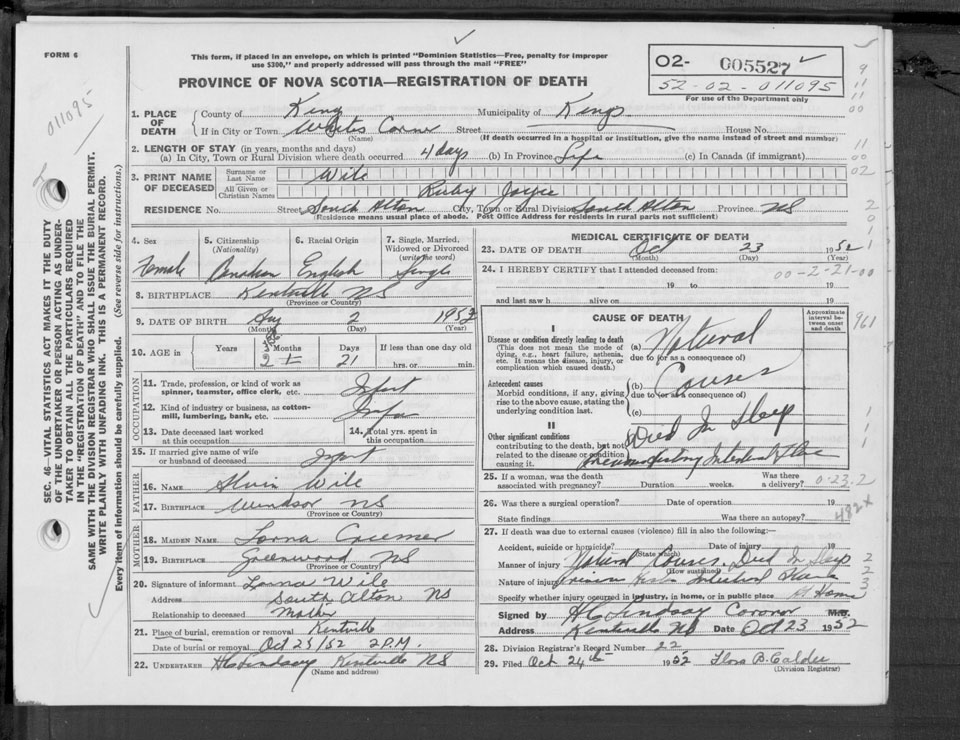 FORM 6
This form, if placed in an envelope, on which is printed "Dominion Statistics—Free, penalty for improper
use $300," and properly addressed will pass through the mail "FREE"
PROVINCE OF NOVA SCOTIA—REGISTRATION OF DEATH
O2- 005527
52-02-011095
For use of the Department only
011095
SEC. 46—VITAL STATISTICS ACT MAKES IT THE DUTY
OF THE UNDERTAKER OR PERSON ACTING AS UNDER-
TAKER TO OBTAIN ALL THE PARTICULARS REQUIRED
IN THE "REGISTRATION OF DEATH" AND TO FILE THE
SAME WITH THE DIVISION REGISTRAR WHO SHALL ISSUE THE BURIAL PERMIT.
WRITE PLAINLY WITH UNFADING INK. THIS IS A PERMANENT RECORD.
Every item of information should be carefully supplied. (See reverse side for instructions.)
1. PLACE OF DEATH County of King Municipality of Kings
If in City or Town Whites Corner Street House No.
(Name) (If death occurred in a hospital or institution, give the name instead of street and number)
2. LENGTH OF STAY (in years, months and days)
(a) In City, Town or Rural Division where death occurred 4 days (b) In Province Life (c) In Canada (if immigrant)
3. PRINT NAME OF DECEASED Surname or Last Name Wile
All Given or Christian Names Ruby Joyce
RESIDENCE No. Street South Alton City, Town or Rural Division South Alton Province NS
(Residence means usual place of abode. Post Office Address for residents in rural parts not sufficient)
4. Sex 5. Citizenship (Nationality) 6. Racial Origin 7. Single, Married, Widowed or Divorced (write the word)
Female Canadian English Single
8. BIRTHPLACE Kentville NS
(Province or Country)
9. DATE OF BIRTH Aug 2 1952
(Month) (Day) (Year)
10. AGE in Years Months Days If less than one day old
2 21 hrs. or min.
OCCUPATION
11. Trade, profession, or kind of work as spinner, teamster, office clerk, etc. Infant
12. Kind of industry or business, as cotton-mill, lumbering, bank, etc.
13. Date deceased last worked at this occupation 14. Total yrs. spent in this occupation
15. If married give name of wife or husband of deceased Infant
FATHER
16. NAME Alvin Wile
17. BIRTHPLACE Windsor NS
(Province or Country)
MOTHER
18. MAIDEN NAME Lorna
19. BIRTHPLACE Greenwood NS
(Province or Country)
20. Signature of informant Lorna Wile
Address South Alton NS
Relationship to deceased Mother
21. Place of burial, cremation or removal Kentville
Date of burial or removal Oct 25/52 2 P.M.
22. UNDERTAKER H C Lindsay Kentville NS
(Name and address)
MEDICAL CERTIFICATE OF DEATH
23. DATE OF DEATH Oct 23 1952
(Month) (Day)
24. I HEREBY CERTIFY that I attended deceased from:
00-2-21-00
19 to 19
and last saw h alive on 19
CAUSE OF DEATH
Approximate interval between onset and death
I
Disease or condition directly leading to death
(This does not mean the mode of dying, e.g., heart failure, asthenia, etc. It means the disease, injury, or complication which caused death.)
(a) Natural
due to (or as a consequence of)
Antecedent causes
Morbid conditions, if any, giving rise to the above cause, stating the underlying condition last.
(b) Causes
due to (or as a consequence of)
(c)
II
Other significant conditions
contributing to the death, but not related to the disease or condition causing it.
Died In Sleep
25. If a woman, was the death associated with pregnancy? Duration weeks. Was there a delivery? 0-23-2
26. Was there a surgical operation? Date of operation 19
State findings Was there an autopsy?
27. If death was due to external causes (violence) fill in also the following:—
Accident, suicide or homicide? Date of injury 19
(State which)
Manner of injury Natural Causes. Died In Sleep
(How sustained)
Nature of injury
Specify whether injury occurred in industry, in home, or in public place At Home
Signed by H C Lindsay Coronor M.D.
Address Kentville NS Date Oct 23 1952
28. Division Registrar's Record Number 22
29. Filed Oct 24th 1952 Flora B. Calder
(Division Registrar)